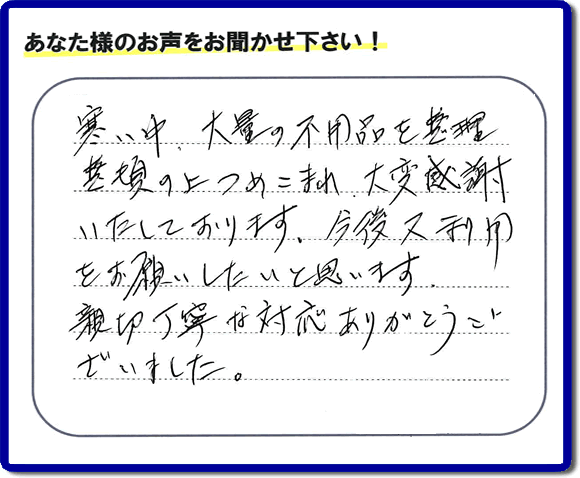 あなた様のお声をお聞かせ下さい！
寒い中、大量の不用品を整理
整頓の上つめこまれ、大変感謝
いたしております。今後又利用
をお願いしたいと思います。
親切丁寧な対応ありがとうご
ざいました。